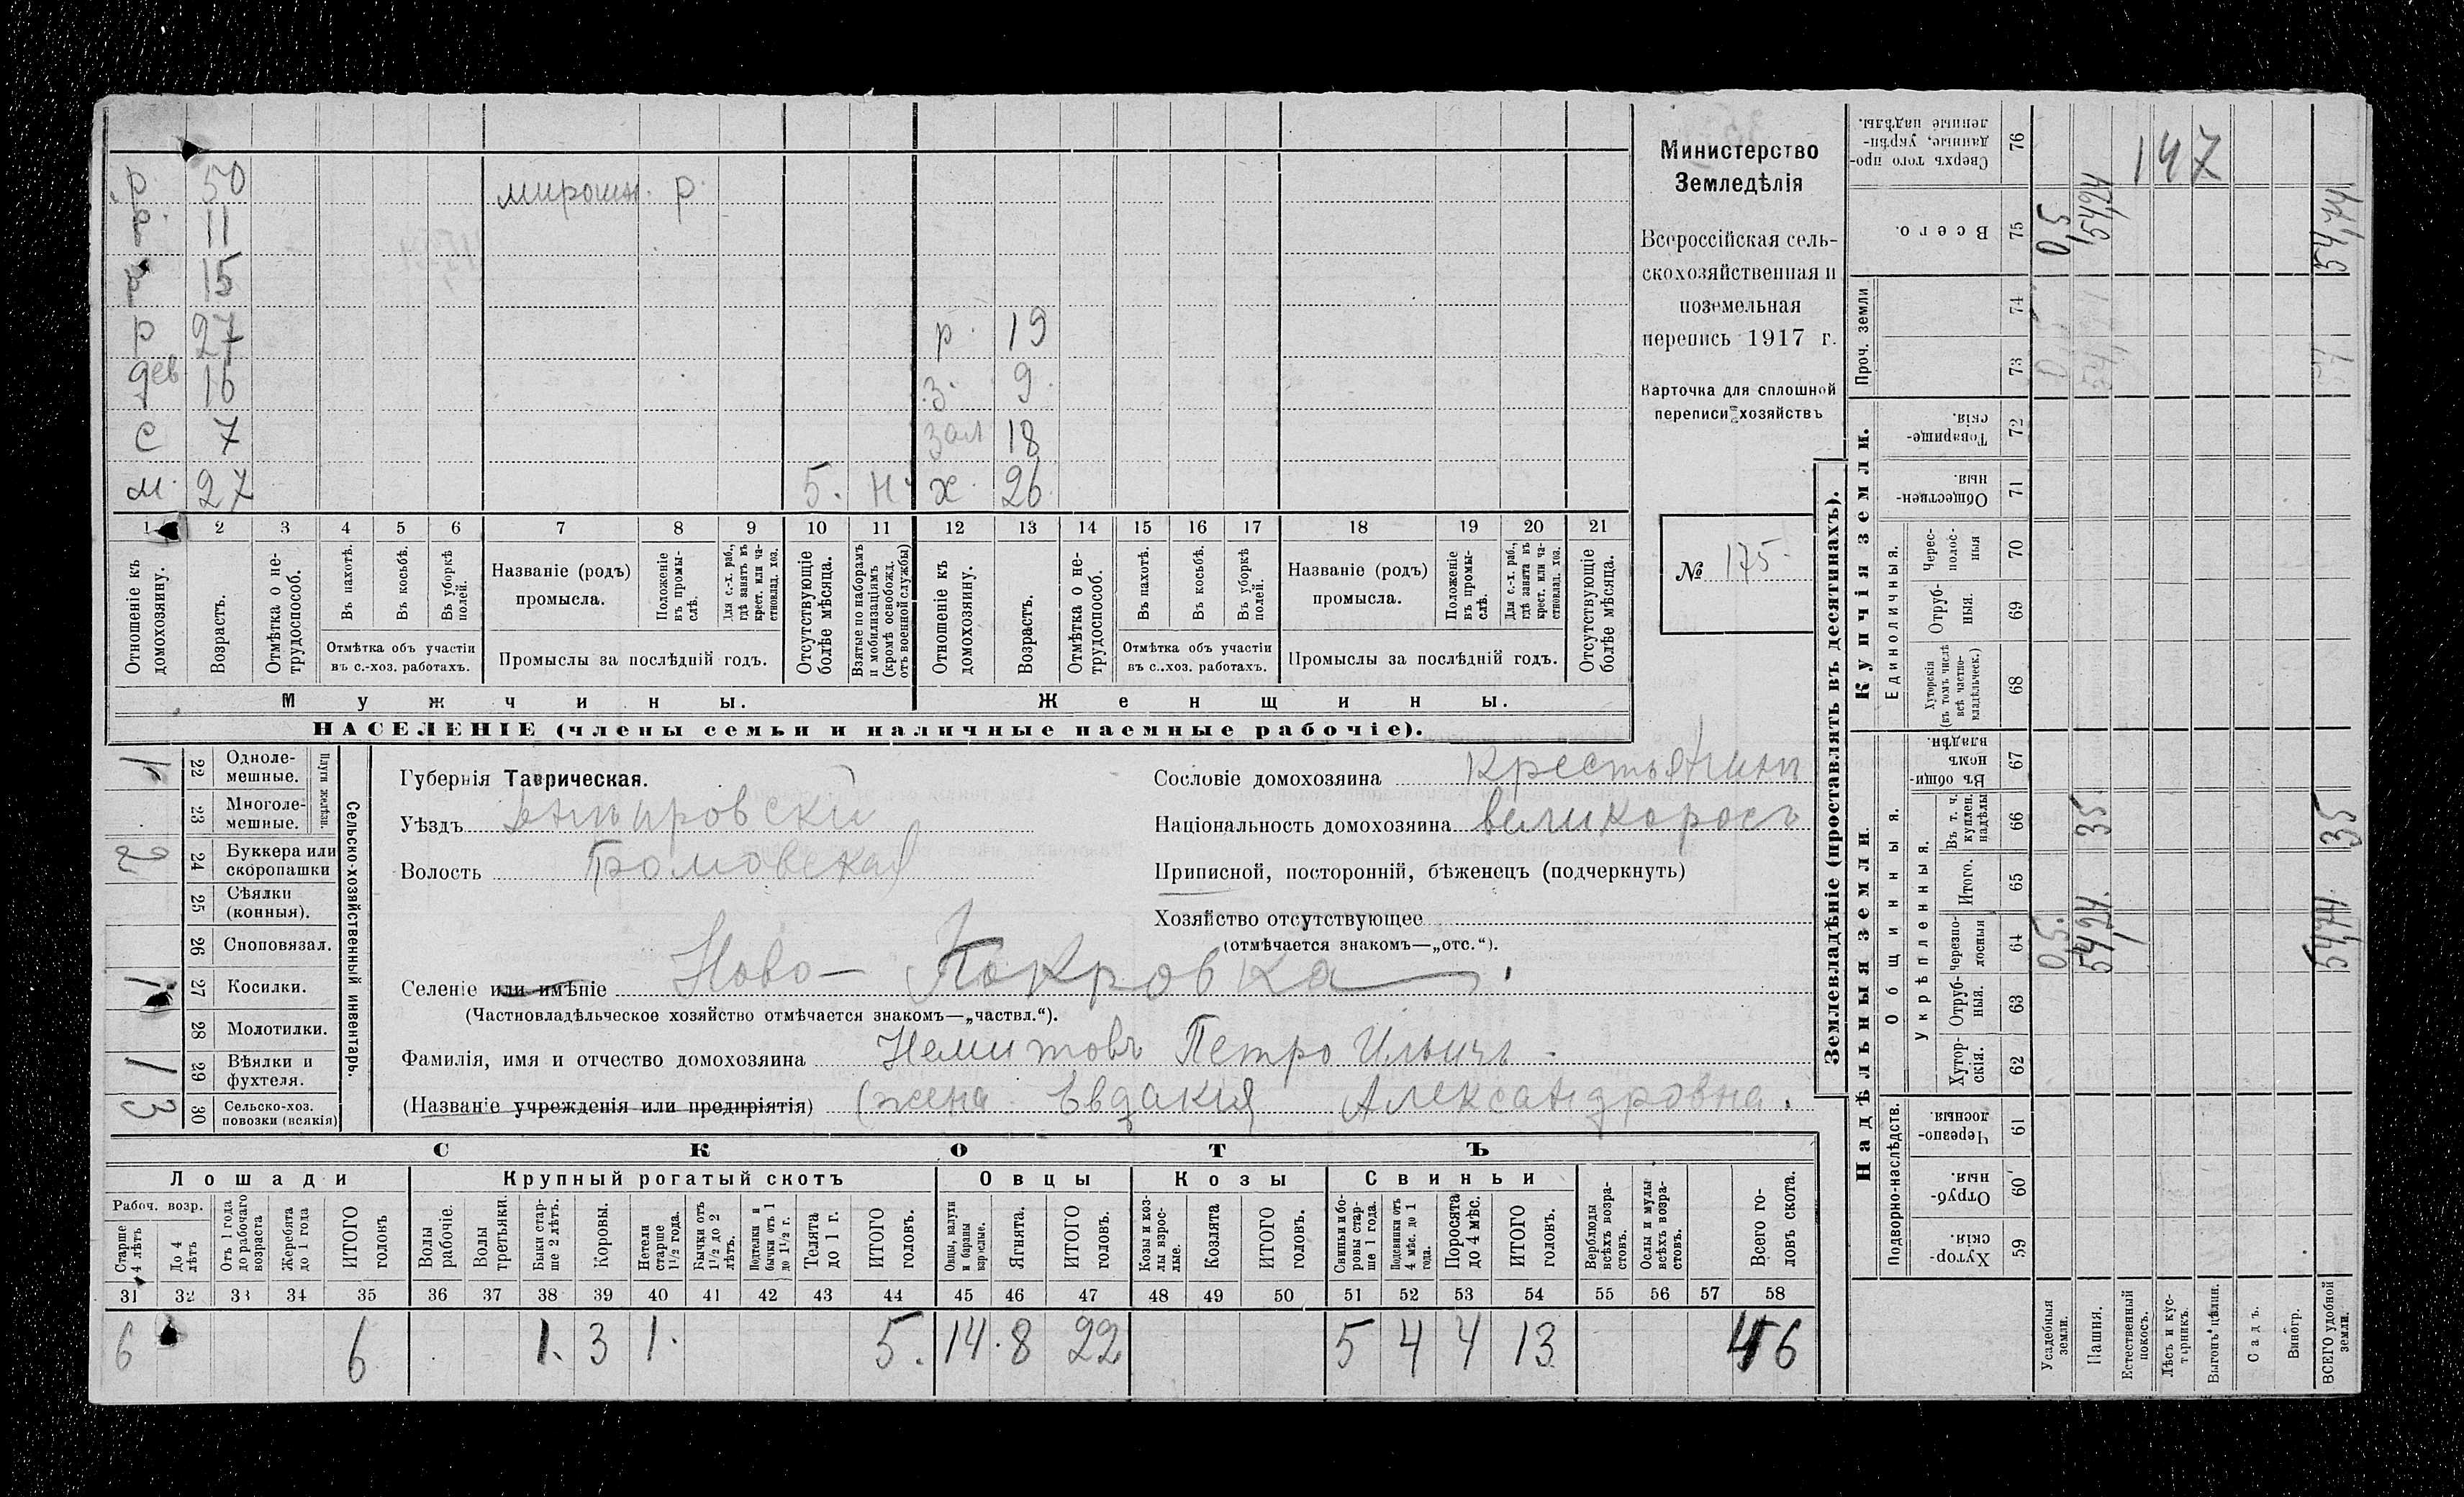 р. 50 мирошн. р.
р. 11
р 15
р 27 р. 19
дев 16 з. 9.
с 7 зал 18
м. 27 5. н. х. 26
1 2 3 4 5 6 7 8 9 10 11 12 13 14 15 16 17 18 19 20 21
Отношеніе къ домохозяину.
Возрастъ.
Отмѣтка о не-трудоспособ.
Въ пахотѣ.
Въ косьбѣ.
Въ уборкѣ полей.
Отмѣтка объ участіи
въ с.-хоз. работахъ.
Названіе (родъ)
промысла.
Положеніе въ промы-слѣ.
Для с.-х. раб., гдѣ занятъ въ крест. или ча-стновлад. хоз.
Промыслы за послѣдній годъ.
Отсутствующіе болѣе мѣсяца.
Взятые по наборамъ и мобилизаціямъ (кромѣ освобожд. отъ военной службы)
Отношеніе къ домохозяину.
Возрастъ.
Отмѣтка о не-трудоспособ.
Въ пахотѣ.
Въ косьбѣ.
Въ уборкѣ полей.
Отмѣтка объ участіи
въ с.-хоз. работахъ.
Названіе (родъ)
промысла.
Положеніе въ промы-слѣ.
Для с.-х. раб., гдѣ занята въ крест. или ча-стновлад. хоз.
Промыслы за послѣдній годъ.
Отсутствующіе болѣе мѣсяца.
Мужчины. Женщины.
НАСЕЛЕНІЕ (члены семьи и наличные наемные рабочіе).
Министерство
Земледѣлія
Всероссійская сель-
скохозяйственная и
поземельная
перепись 1917 г.
Карточка для сплошной
переписи хозяйствъ
№ 175
Сельско-хозяйственный инвентарь.
Плуги желѣзн.
1 22 Одноле-мешные.
23 Многоле-мешные.
2 24 Буккера или скоропашки
25 Сѣялки (конныя).
26 Сноповязал.
1 27 Косилки.
28 Молотилки.
1 29 Вѣялки и фухтеля.
3 30 Сельско-хоз. повозки (всякія)
Губернія Таврическая.
Уѣздъ Днѣпровскій
Волость Громовская
Селеніе или имѣніе Ново-Покровка
(Частновладѣльческое хозяйство отмѣчается знакомъ—„частвл.“).
Фамилія, имя и отчество домохозяина Немитовъ Петро Ильичъ
(Названіе учрежденія или предпріятія) (жена Евдакия Александровна.
Сословіе домохозяина Крестьянинъ
Національность домохозяина великоросъ
Приписной, посторонній, бѣженецъ (подчеркнуть)
Хозяйство отсутствующее
(отмѣчается знакомъ—„отс.“).
СКОТЪ
Лошади Крупный рогатый скотъ Овцы Козы Свиньи
Рабоч. возр.
Старше 4 лѣтъ
До 4 лѣтъ
Отъ 1 года до рабочаго возраста
Жеребята до 1 года
ИТОГО головъ
Волы рабочіе.
Волы третьяки.
Быки стар-ше 2 лѣтъ.
Коровы.
Нетели старше 1½ года.
Бычки отъ 1½ до 2 лѣтъ.
Подтелки и бычки отъ 1 до 1½ г.
Телята до 1 г.
ИТОГО головъ.
Овцы, валухи и бараны взрослые.
Ягнята.
ИТОГО головъ.
Козы и коз-лы взрос-лые.
Козлята
ИТОГО головъ.
Свиньи и бо-ровы стар-ше 1 года.
Подсвинки отъ 4 мѣс. до 1 года.
Поросята до 4 мѣс.
ИТОГО головъ.
Верблюды всѣхъ возра-стовъ.
Ослы и мулы всѣхъ возра-стовъ.
Всего го-ловъ скота.
31 32 33 34 35 36 37 38 39 40 41 42 43 44 45 46 47 48 49 50 51 52 53 54 55 56 57 58
6 6 1. 3 1. 5. 14. 8 22 5 4 4 13 46
Землевладѣніе (проставлять въ десятинахъ).
Купчія земли.
Надѣльныя земли.
Сверхъ того про-данные, укрѣп-ленные надѣлы. 76 147
Всего. 75 0,5 54,24 54,74
Проч. земли 74 73
Товарище-скія. 72
Обществен-ныя. 71
Единоличныя.
Черес-полос-ныя 70
Отруб-ныя. 69
Хуторскія (въ томъ числѣ всѣ частно-владѣльческ.) 68
Общинныя.
Укрѣпленныя.
Въ общин-номъ владѣн. 67
Въ т. ч. куплен. надѣлы 66 35 35
Итого. 65
Черезпо-лосныя 64 0,5. 54,24. 54,74
Отруб-ныя. 63
Хутор-скія. 62
Подворно-наслѣдств.
Черезпо-лосныя. 61
Отруб-ныя. 60
Хутор-скія. 59
Усадебныя земли.
Пашня.
Естественный покосъ.
Лѣсъ и кус-тарникъ.
Выгонъ, цѣлин.
Садъ.
Виногр.
ВСЕГО удобной земли.